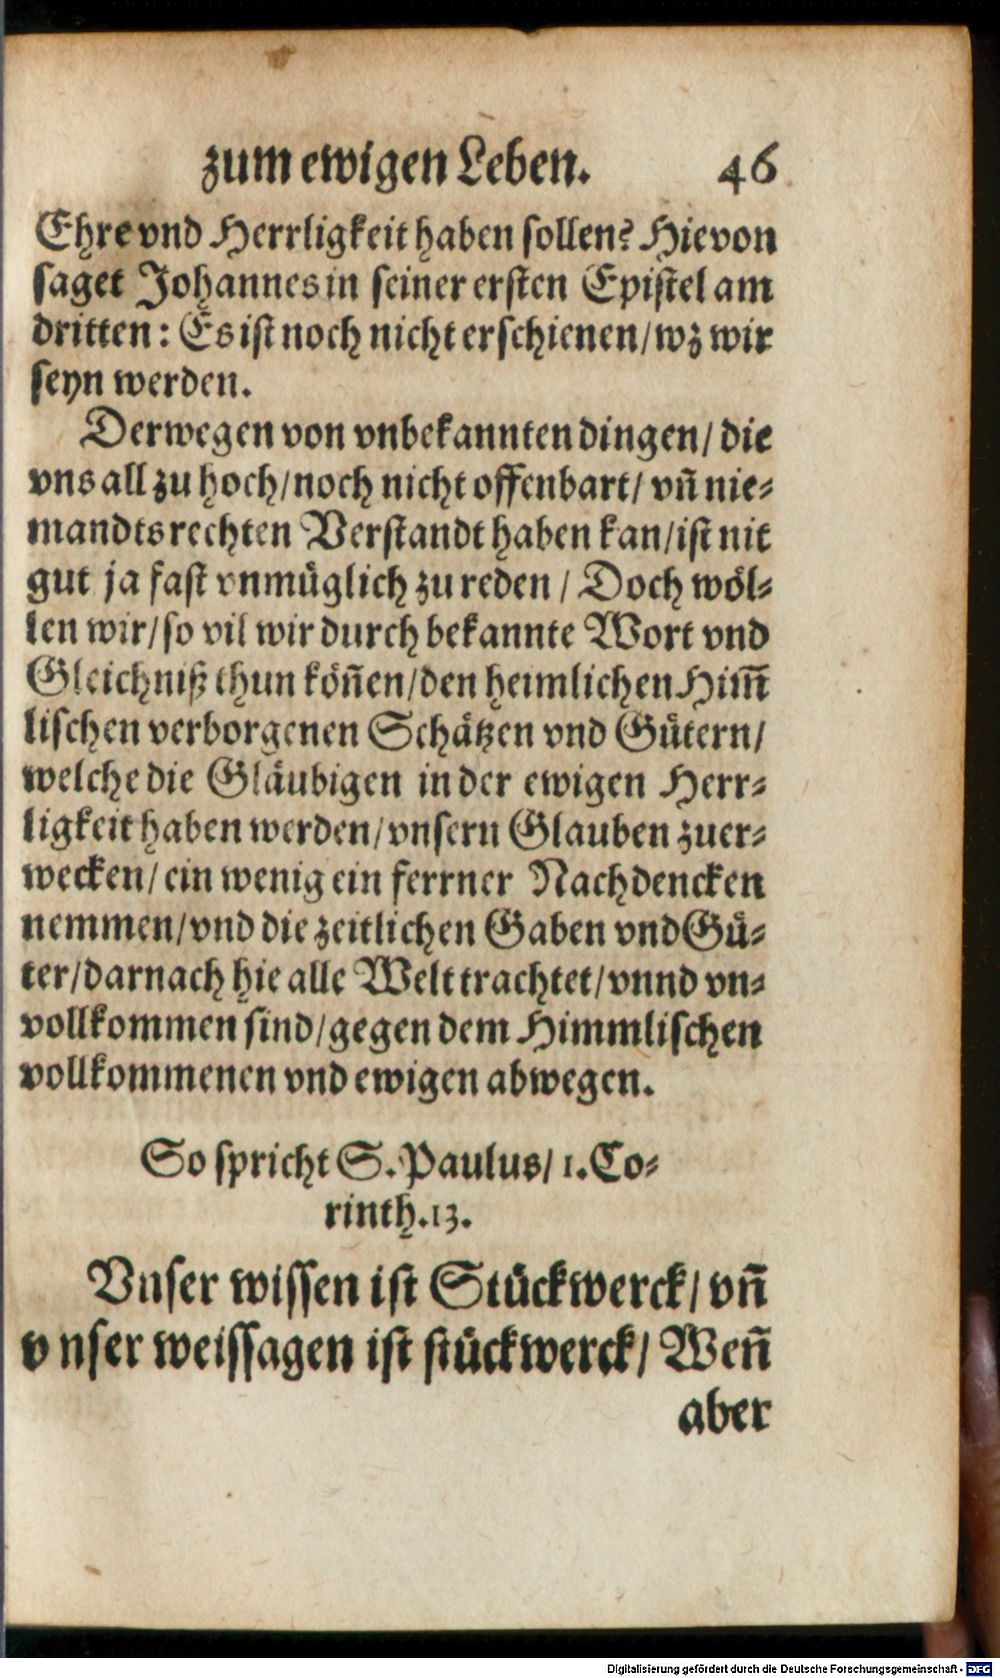 zum ewigen Leben. 46
Ehre vnd Herrligkeit haben sollen? Hievon
saget Johannes in seiner ersten Epistel am
dritten: Es ist noch nicht erschienen/ wz wir
seyn werden.
Derwegen von vnbekannten dingen/ die
vns all zu hoch/ noch nicht offenbart/ vn̄ nie-
mandts rechten Verstandt haben kan/ ist nit
gut ja fast vnmüglich zu reden / Doch wöl-
len wir/ so vil wir durch bekannte Wort vnd
Gleichniß thun kön̄en/ den heimlichen Him̄
lischen verborgenen Schätzen vnd Gütern/
welche die Gläubigen in der ewigen Herr-
ligkeit haben werden/ vnsern Glauben zuer-
wecken/ ein wenig ein ferrner Nachdencken
nemmen/ vnd die zeitlichen Gaben vnd Gü-
ter/ darnach hie alle Welt trachtet/ vnnd vn-
vollkommen sind/ gegen dem Himmlischen
vollkommenen vnd ewigen abwegen.
So spricht S. Paulus/ 1. Co-
rinth. 13.
Vnser wissen ist Stückwerck/ vn̄
vnser weissagen ist stückwerck/ Wen̄
aber
Digitalisierung gefördert durch die Deutsche Forschungsgemeinschaft - DFG